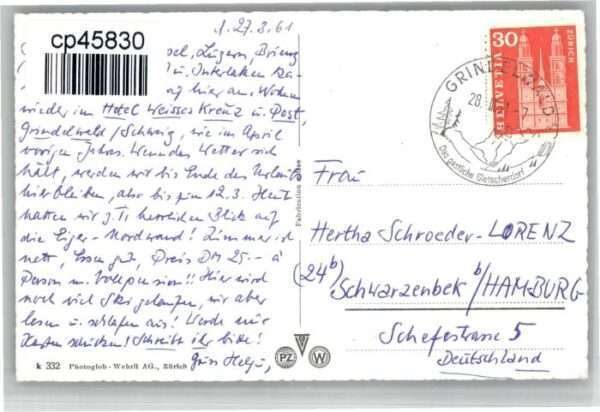 cp45830
27.2.61
Luzern, Brienz
u. Interlaken
hier an. Wohnen
wieder im Hotel Weisses Kreuz u. Post,
Grindelwald / Schweiz, wie im April
vorigen Jahres. Wenn das Wetter sich
hält, werden wir bis Ende des Urlaubs
hierbleiben, also bis zum 12.3. Heut
hatten wir z. Tl. herrlichen Blick auf
die Eiger-Nordwand! Zimmer ist
nett, Essen gut, Preis DM 25.- à
Person m. Vollpension!! Hier wird
noch viel Ski gelaufen, wir aber
lesen u. schlafen aus! Werde mir
Karten schicken! Schreibt ihr bitte!
Gruss Helga,
30
HELVETIA
ZÜRICH
GRINDELWALD
28. II. 61 - 7
Das gastliche Gletscherdorf
Frau
Hertha Schroeder-LORENZ
(24b) Schwarzenbek b/HAMBURG
Schefestrasse 5
Deutschland
k 332 Photoglob-Wehrli AG., Zürich
PZ W